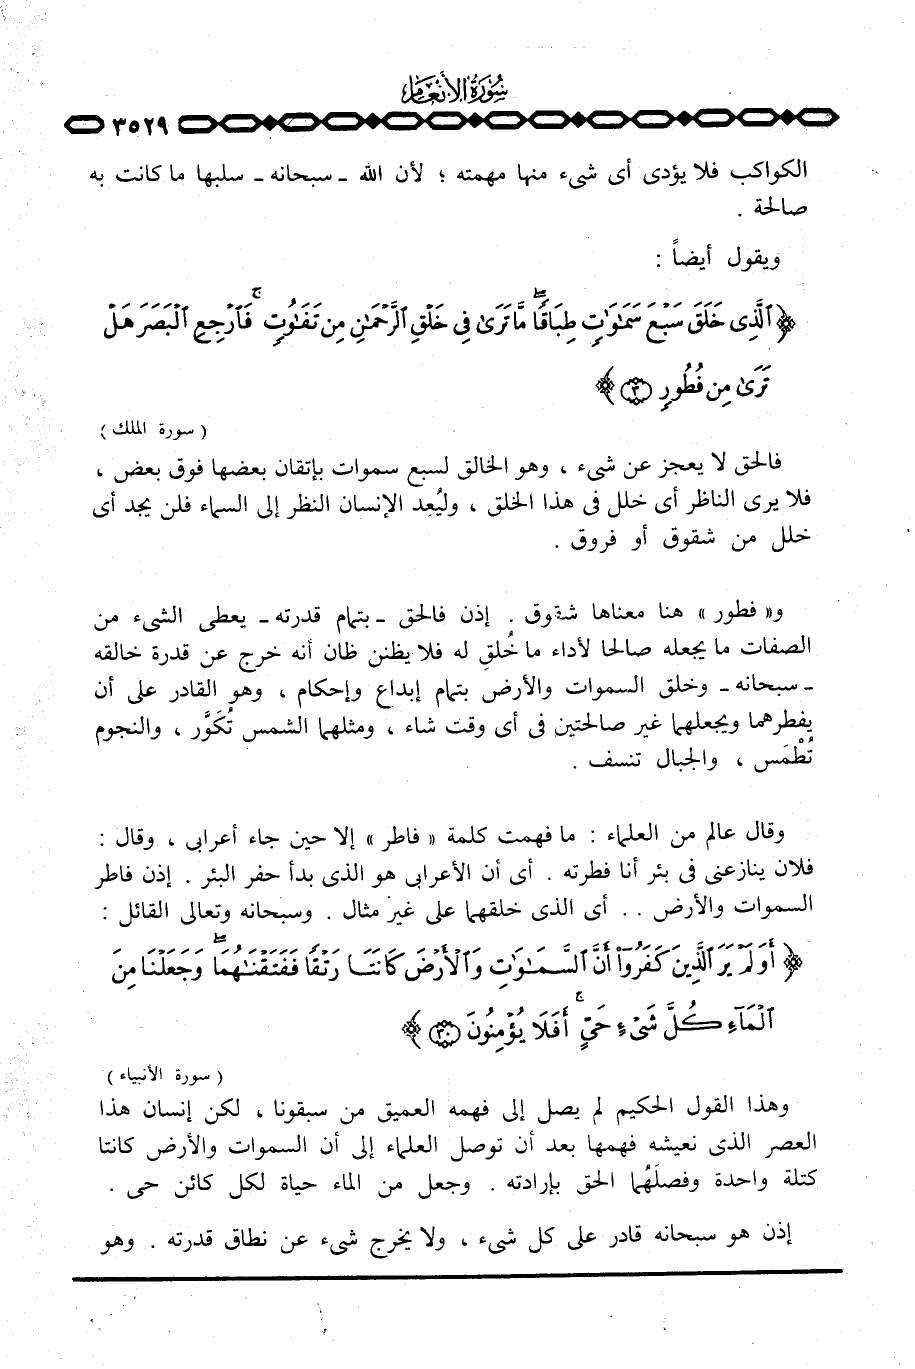 سُورَةُ الأَنْعَامِ
٣٥٢٩
الكواكب فلا يؤدى أى شىء منها مهمته ؛ لأن الله ـ سبحانه ـ سلبها ما كانت به
صالحة .
ويقول أيضاً :
﴿ ٱلَّذِى خَلَقَ سَبْعَ سَمَـٰوَٰتٍ طِبَاقًا ۖ مَّا تَرَىٰ فِى خَلْقِ ٱلرَّحْمَـٰنِ مِن تَفَـٰوُتٍ ۚ فَٱرْجِعِ ٱلْبَصَرَ هَلْ
تَرَىٰ مِن فُطُورٍ ۝٣ ﴾
( سورة الملك )
فالحق لا يعجز عن شىء ، وهو الخالق لسبع سموات بإتقان بعضها فوق بعض ،
فلا يرى الناظر أى خلل فى هذا الخلق ، وليُعِد الإنسان النظر إلى السماء فلن يجد أى
خلل من شقوق أو فروق .
و« فطور » هنا معناها شقوق . إذن فالحق ـ بتمام قدرته ـ يعطى الشىء من
الصفات ما يجعله صالحا لأداء ما خُلق له فلا يظنن ظان أنه خرج عن قدرة خالقه
ـ سبحانه ـ وخلق السموات والأرض بتمام إبداع وإحكام ، وهو القادر على أن
يفطرهما ويجعلهما غير صالحتين فى أى وقت شاء ، ومثلهما الشمس تُكَوَّر ، والنجوم
تُطْمَس ، والجبال تنسف .
وقال عالم من العلماء : ما فهمت كلمة « فاطر » إلا حين جاء أعرابى ، وقال :
فلان ينازعنى فى بئر أنا فطرته . أى أن الأعرابى هو الذى بدأ حفر البئر . إذن فاطر
السموات والأرض . . أى الذى خلقهما على غير مثال . وسبحانه وتعالى القائل :
﴿ أَوَلَمْ يَرَ ٱلَّذِينَ كَفَرُوٓا۟ أَنَّ ٱلسَّمَـٰوَٰتِ وَٱلْأَرْضَ كَانَتَا رَتْقًا فَفَتَقْنَـٰهُمَا ۖ وَجَعَلْنَا مِنَ
ٱلْمَآءِ كُلَّ شَىْءٍ حَىٍّ ۚ أَفَلَا يُؤْمِنُونَ ۝٣٠ ﴾
( سورة الأنبياء )
وهذا القول الحكيم لم يصل إلى فهمه العميق من سبقونا ، لكن إنسان هذا
العصر الذى نعيشه فهمها بعد أن توصل العلماء إلى أن السموات والأرض كانتا
كتلة واحدة وفصلَهُما الحق بإرادته . وجعل من الماء حياة لكل كائن حى .
إذن هو سبحانه قادر على كل شىء ، ولا يخرج شىء عن نطاق قدرته . وهو